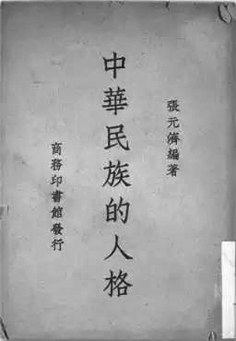 張元濟編著
中華民族的人格
商務印書館發行